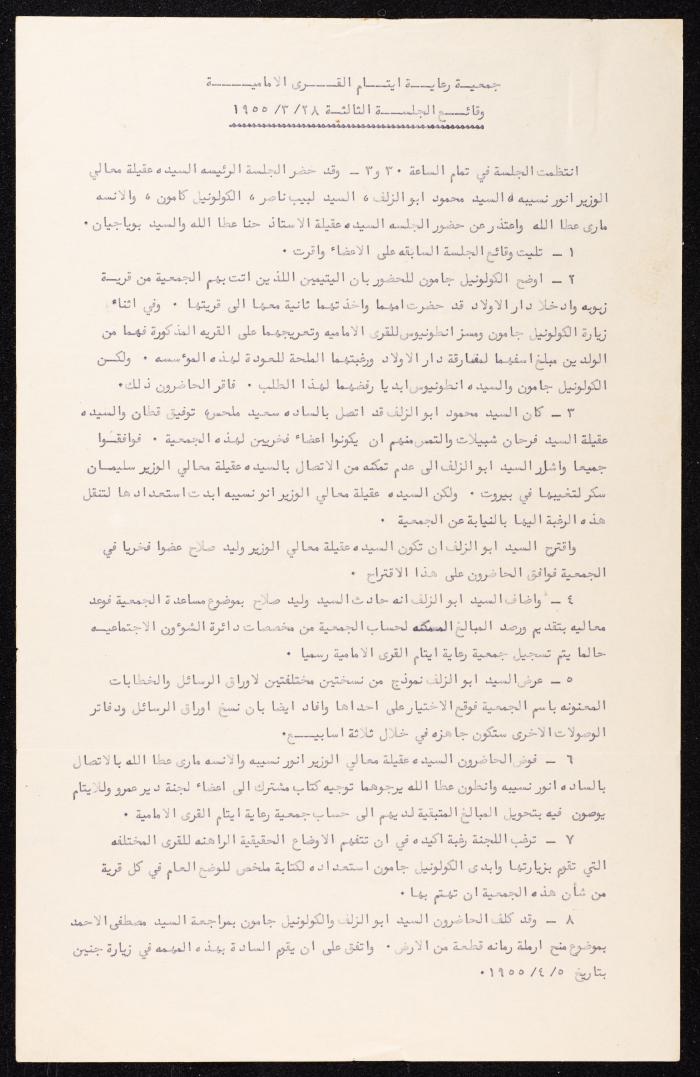 جمعية رعاية ايتام القرى الامامية
وقائع الجلسة الثالثة ٢٨ /٣ /١٩٥٥
انتظمت الجلسة في تمام الساعة ٣٠ و٣ - وقد حضر الجلسة الرئيسه السيده عقيلة معالي
الوزير انور نسيبه ، السيد محمود ابو الزلف ، السيد لبيب ناصر ، الكولونيل كامون ، والانسه
مارى عطا الله واعتذر عن حضور الجلسه السيده عقيلة الاستاذ حنا عطا الله والسيد بوياجيان .
١ - تليت وقائع الجلسة السابقه على الاعضاء واقرت .
٢ - اوضح الكولونيل جامون للحضور بان اليتيمين اللذين اتت بهم الجمعية من قرية
زبوبه وادخلا دار الاولاد قد حضرت امهما واخذتهما ثانية معها الى قريتها . وفي اثناء
زيارة الكولونيل جامون ومسز انطونيوس للقرى الاماميه وتعريجهما على القريه المذكورة فهما من
الولدين مبلغ اسفهما لمفارقة دار الاولاد ورغبتهما الملحة للعودة لهذه المؤسسه . ولكن
الكولونيل جامون والسيده انطونيوس ابديا رفضهما لهذا الطلب . فاقر الحاضرون ذلك.
٣ - كان السيد محمود ابو الزلف قد اتصل بالساده سعيد ملحس، توفيق قطان والسيده
عقيلة السيد فرحان شبيلات والتمس منهم ان يكونوا اعضاء فخريين لهذه الجمعية . فوافقوا
جميعا واشار السيد ابو الزلف الى عدم تمكنه من الاتصال بالسيده عقيلة معالي الوزير سليمان
سكر لتغيبها في بيروت . ولكن السيده عقيلة معالي الوزير انو نسيبه ابدت استعدادها لتنقل
هذه الرغبة اليها بالنيابة عن الجمعية .
واقترح السيد ابو الزلف ان تكون السيده عقيلة معالي الوزير وليد صلاح عضوا فخريا في
الجمعية فوافق الحاضرون على هذا الاقتراح .
٤ - واضاف السيد ابو الزلف انه حادث السيد وليد صلاح بموضوع مساعدة الجمعية فوعد
معاليه بتقديم ورصد المبالغ الممكنه لحساب الجمعية من مخصصات دائرة الشوءون الاجتماعيه
حالما يتم تسجيل جمعية رعاية ايتام القرى الامامية رسميا .
٥ - عرض السيد ابو الزلف نموذج من نسختين مختلفتين لاوراق الرسائل والخطابات
المعنونه باسم الجمعية فوقع الاختيار على احداها وافاد ايضا بان نسخ اوراق الرسائل ودفاتر
الوصولات الاخرى ستكون جاهزه في خلال ثلاثة اسابيع.
٦ - فوض الحاضرون السيده عقيلة معالي الوزير انور نسيبه والانسه مارى عطا الله بالاتصال
بالساده انور نسيبه وانطون عطا الله يرجوهما توجيه كتاب مشترك الى اعضاء لجنة دير عمرو وللايتام
يوصون فيه بتحويل المبالغ المتبقية لديهم الى حساب جمعية رعاية ايتام القرى الامامية .
٧ - ترغب اللجنة رغبة اكيده في ان تتفهم الاوضاع الحقيقية الراهنه للقرى المختلفه
التي تقوم بزيارتها وابدى الكولونيل جامون استعداده لكتابة ملخص للوضع العام في كل قرية
من شأن هذه الجمعية ان تهتم بها .
٨ - وقد كلف الحاضرون السيد ابو الزلف والكولونيل جامون بمراجعة السيد مصطفى الاحمد
بموضوع منح ارملة رمانه قطعة من الارض . واتفق على ان يقوم السادة بهذه المهمه في زيارة جنين
بتاريخ ٥ /٤ /١٩٥٥ .